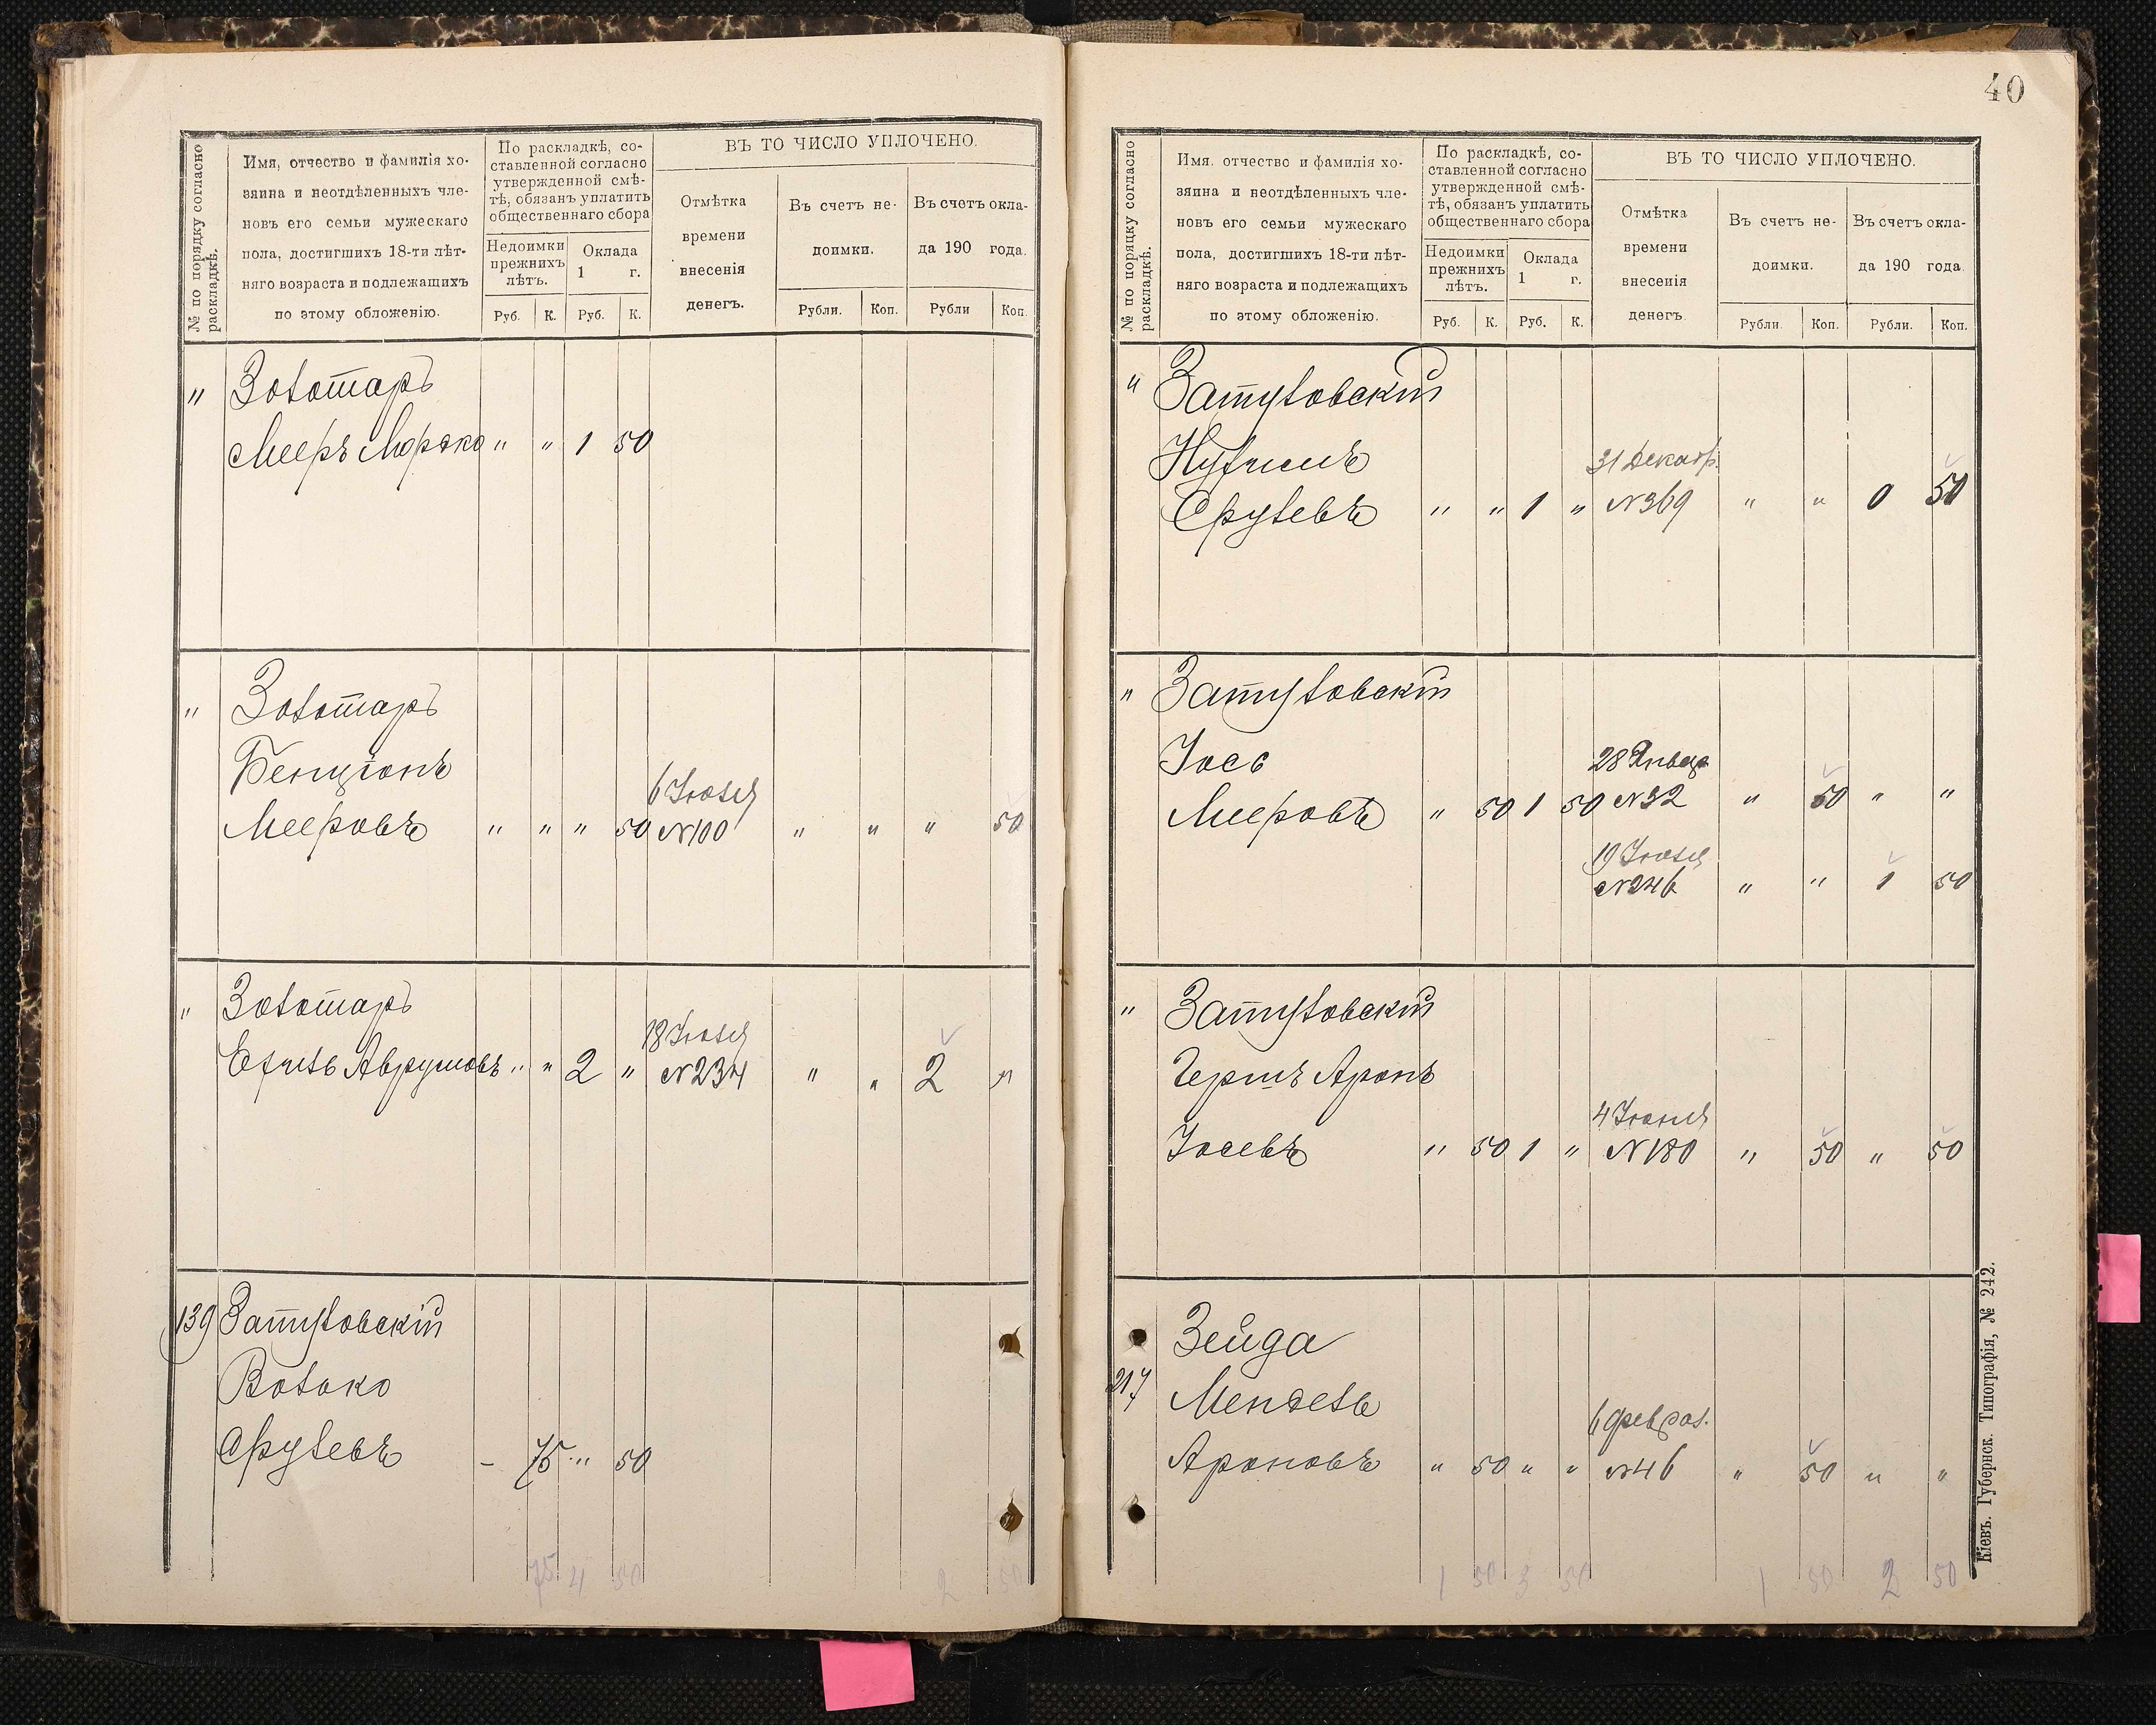 № по порядку согласно
раскладкѣ.
Имя, отчество и фамилія хо-
зяина и неотдѣленныхъ чле-
новъ его семьи мужескаго
пола, достигшихъ 18-ти лѣт-
няго возраста и подлежащихъ
по этому обложенію.
По раскладкѣ, со-
ставленной согласно
утвержденной смѣ-
тѣ, обязанъ уплатить
общественнаго сбора
Недоимки
прежнихъ
лѣтъ.
Оклада
1 г.
Руб. К. Руб. К.
ВЪ ТО ЧИСЛО УПЛОЧЕНО.
Отмѣтка
времени
внесенія
денегъ.
Въ счетъ не-
доимки.
Въ счетъ окла-
да 190 года.
Рубли. Коп. Рубли Коп.
" Золотаръ
Мееръ Мошко " " 1 50
" Золотаръ
Бенціонъ
6 Іюля
Мееровъ " " " 50 №100 " " " 50
" Золотаръ
18 Іюля
Авруmовъ " " 2 " №234 " " 2 "
139 Затуловскій
Волько
Срулевъ - 75 " 50
75 4 50 2 50
40
№ по порядку согласно
раскладкѣ.
Имя. отчество и фамилія хо-
зяина и неотдѣленныхъ чле-
новъ его семьи мужескаго
пола, достигшихъ 18-ти лѣт-
няго возраста и подлежащихъ
по этому обложенію.
По раскладкѣ, со-
ставленной согласно
утвержденной смѣ-
тѣ, обязанъ уплатить
общественнаго сбора
Недоимки
прежнихъ
лѣтъ.
Оклада
1 г.
Руб. К. Руб. К.
ВЪ ТО ЧИСЛО УПЛОЧЕНО.
Отмѣтка
времени
внесенія
денегъ
Въ счетъ не-
доимки.
Въ счетъ окла-
да 190 года.
Рубли. Коп. Рубли. Коп.
" Затуловскій
Нухимъ
31 Декабр.
Срулевъ " " 1 " №369 " " 0 50
" Затуловскій
Іось
28 Января
Мееровъ " 50 1 50 №32 " 50 " "
19 Іюля
№246 " " 1 50
" Затуловскій
Гершъ Аронъ
4 Іюня
Іосевъ " 50 1 " №180 " 50 " 50
Зейда
217 Мендель
6 Феврал.
Ароновъ " 50 " " №46 " 50 " "
1 50 3 50 1 50 2 50
Кіевъ. Губернск. Типографія, № 242.